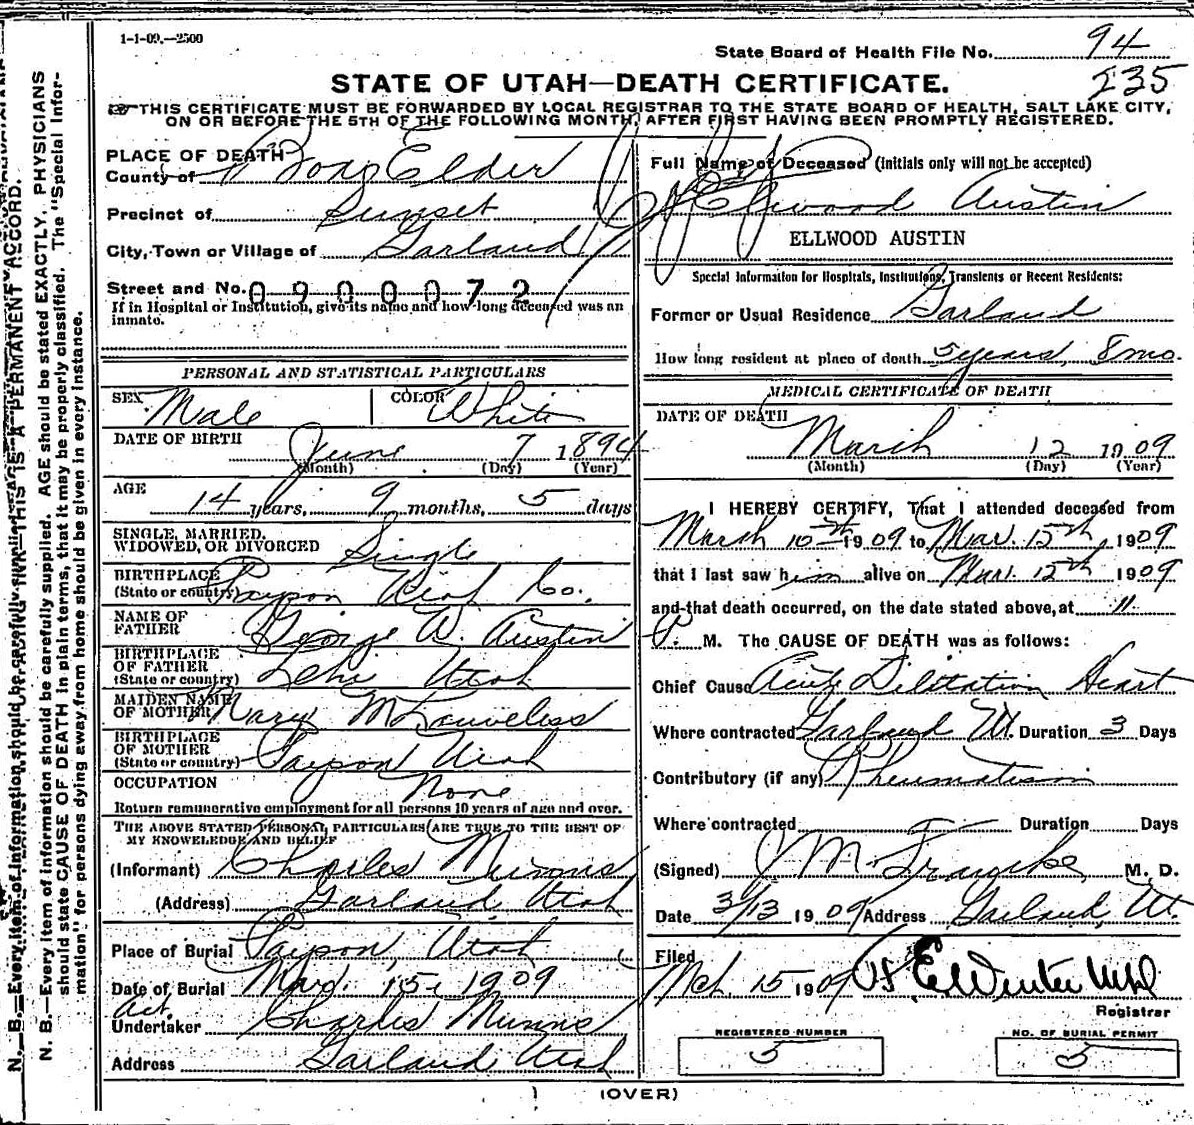 1-1-09.—2500
State Board of Health File No. 94
235
STATE OF UTAH—DEATH CERTIFICATE.
THIS CERTIFICATE MUST BE FORWARDED BY LOCAL REGISTRAR TO THE STATE BOARD OF HEALTH, SALT LAKE CITY,
ON OR BEFORE THE 5TH OF THE FOLLOWING MONTH, AFTER FIRST HAVING BEEN PROMPTLY REGISTERED.
PLACE OF DEATH
County of Box Elder
Precinct of Sunset
City, Town or Village of Garland
Street and No. 0900072
If in Hospital or Institution, give its name and how long deceased was an
inmate.
PERSONAL AND STATISTICAL PARTICULARS
SEX Male COLOR White
DATE OF BIRTH June 7 1894
(Month) (Day) (Year)
AGE 14 years, 9 months, 5 days
SINGLE, MARRIED,
WIDOWED, OR DIVORCED Single
BIRTHPLACE
(State or country) Payson Utah Co.
NAME OF
FATHER George W. Austin
BIRTHPLACE
OF FATHER
(State or country) Lehi Utah
MAIDEN NAME
OF MOTHER Mary M Louveless
BIRTHPLACE
OF MOTHER
(State or country) Payson Utah
OCCUPATION None
Return remunerative employment for all persons 10 years of age and over.
THE ABOVE STATED PERSONAL PARTICULARS ARE TRUE TO THE BEST OF
MY KNOWLEDGE AND BELIEF
(Informant) Charles Munns
(Address) Garland Utah
Place of Burial Payson, Utah
Date of Burial Mar. 15, 1909
Act.
Undertaker Charles Munns
Address Garland Utah
Full Name of Deceased (Initials only will not be accepted)
Ellwood Austin
ELLWOOD AUSTIN
Special Information for Hospitals, Institutions, Transients or Recent Residents:
Former or Usual Residence Garland
How long resident at place of death 5 years, 8 mo.
MEDICAL CERTIFICATE OF DEATH
DATE OF DEATH
March 12 1909
(Month) (Day) (Year)
I HEREBY CERTIFY, That I attended deceased from
March 10th 1909 to Mar. 12th, 1909
that I last saw him alive on Mar. 12th 1909
and that death occurred, on the date stated above, at 11
P. M. The CAUSE OF DEATH was as follows:
Chief Cause Acute Dilitation Heart
Where contracted Garland Ut. Duration 3 Days
Contributory (if any) Rheumatism
Where contracted Duration Days
(Signed) J M Francke M. D.
Date 3/13 1909 Address Garland, Ut.
Filed
Mch. 15 1909 E. Winter
Registrar
REGISTERED NUMBER
5
NO. OF BURIAL PERMIT
5
(OVER)
N. B.—Every item of information should be carefully supplied. AGE should be stated EXACTLY. PHYSICIANS
should state CAUSE OF DEATH in plain terms, that it may be properly classified. The "Special Infor-
mation" for persons dying away from home should be given in every instance.